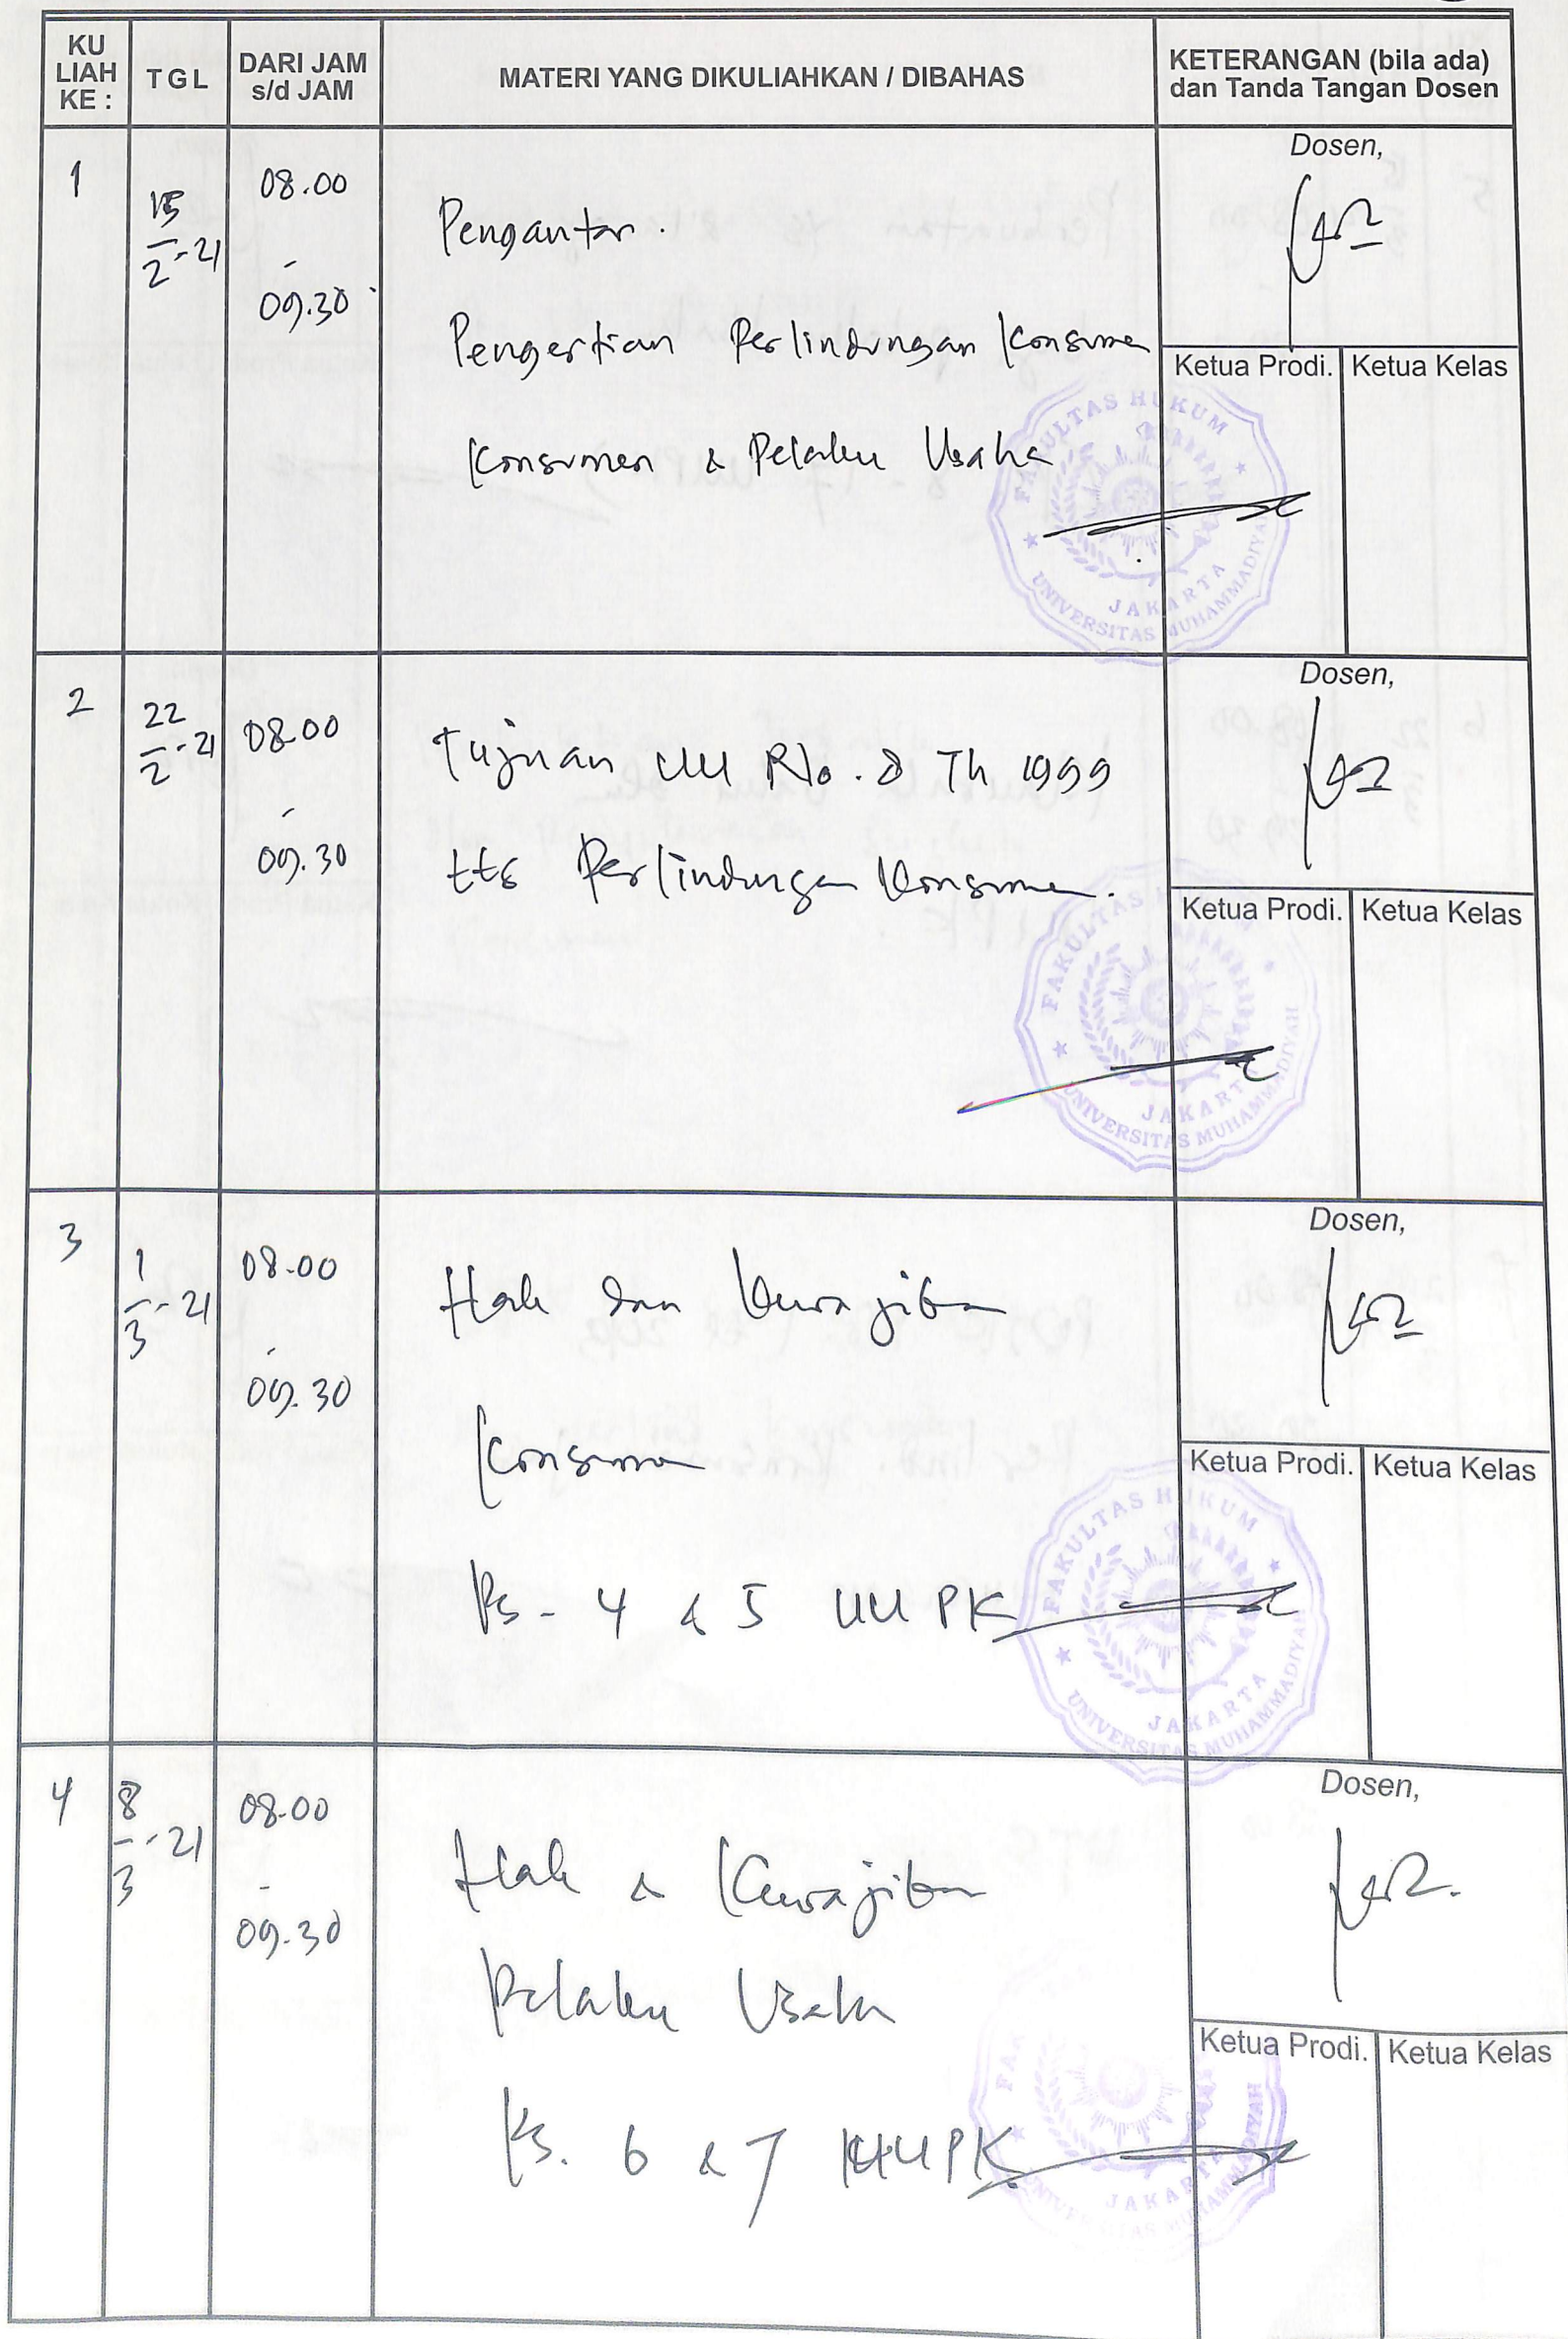 KU LIAH KE :
TGL
DARI JAM s/d JAM
MATERI YANG DIKULIAHKAN / DIBAHAS
KETERANGAN (bila ada) dan Tanda Tangan Dosen
1
15/2-21
08.00
-
09.30
Pengantar.
Pengertian Perlindungan Konsumen
Konsumen & Pelaku Usaha
Dosen,
Ketua Prodi.
Ketua Kelas
FAKULTAS HUKUM
UNIVERSITAS MUHAMMADIYAH
JAKARTA
2
22/2-21
08.00
-
09.30
Tujuan UU No. 8 Th 1999
ttg Perlindungan Konsumen.
Dosen,
Ketua Prodi.
Ketua Kelas
FAKULTAS HUKUM
UNIVERSITAS MUHAMMADIYAH
JAKARTA
3
1/3-21
08.00
-
09.30
Hak dan Kewajiban
Konsumen
Ps - 4 & 5 UUPK
Dosen,
Ketua Prodi.
Ketua Kelas
FAKULTAS HUKUM
UNIVERSITAS MUHAMMADIYAH
JAKARTA
4
8/3-21
08.00
-
09.30
Hak & Kewajiban
Pelaku Usaha
Ps. 6 & 7 UUPK
Dosen,
Ketua Prodi.
Ketua Kelas
JAKARTA